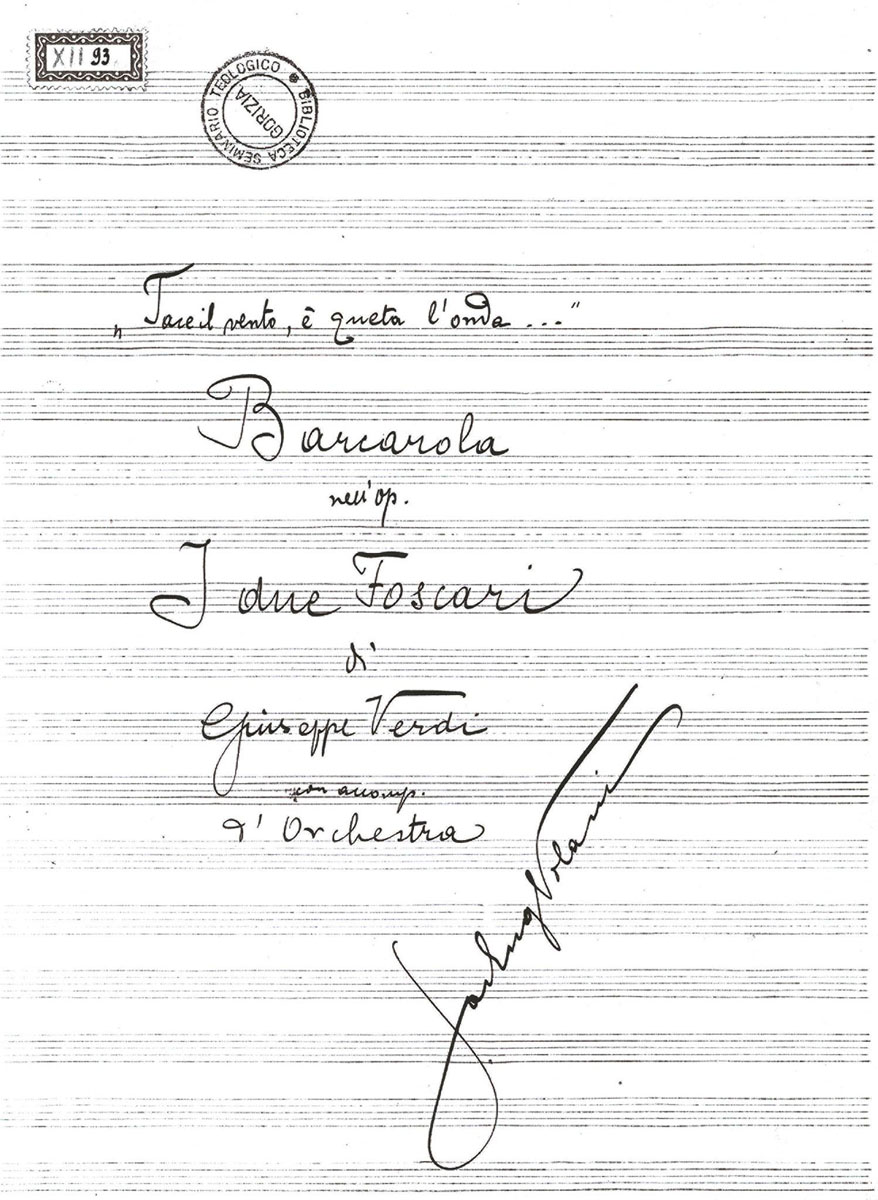 XII 93
BIBLIOTECA SEMINARIO TEOLOGICO
GORIZIA
„Tace il vento, è queta l'onda ..."
Barcarola
nell'op.
I due Foscari
di
Giuseppe Verdi
con accomp.
d'Orchestra